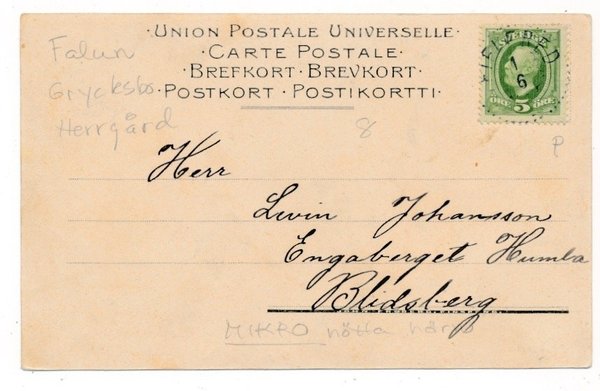 ·UNION POSTALE UNIVERSELLE·
·CARTE POSTALE·
·BREFKORT·BREVKORT·
·POSTKORT·POSTIKORTTI·
Falun
Grycksbo
Herrgård
1
6
ÖRE 5 ÖRE
8
P
Herr
Levin Johansson
Engaberget Humla
Blidsberg
MIKRO nötta hörn